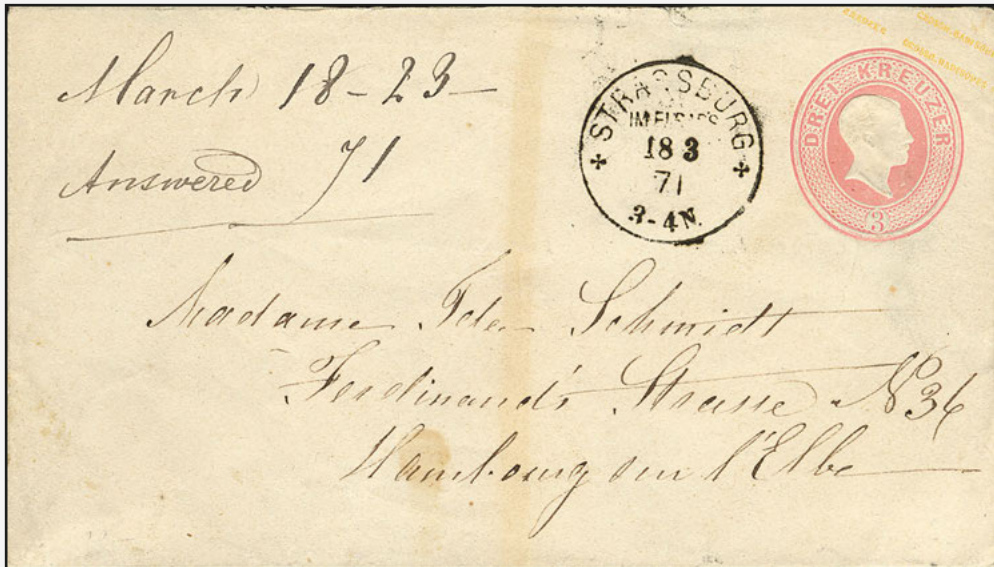 March 18-23-
Answered 71
STRASSBURG
IM ELSASS
18 3
71
3-4N.
DREI KREUZER
3
Madame Ida Schmidt
Ferdinand's Strasse No 36
Hambourg sur l'Elbe